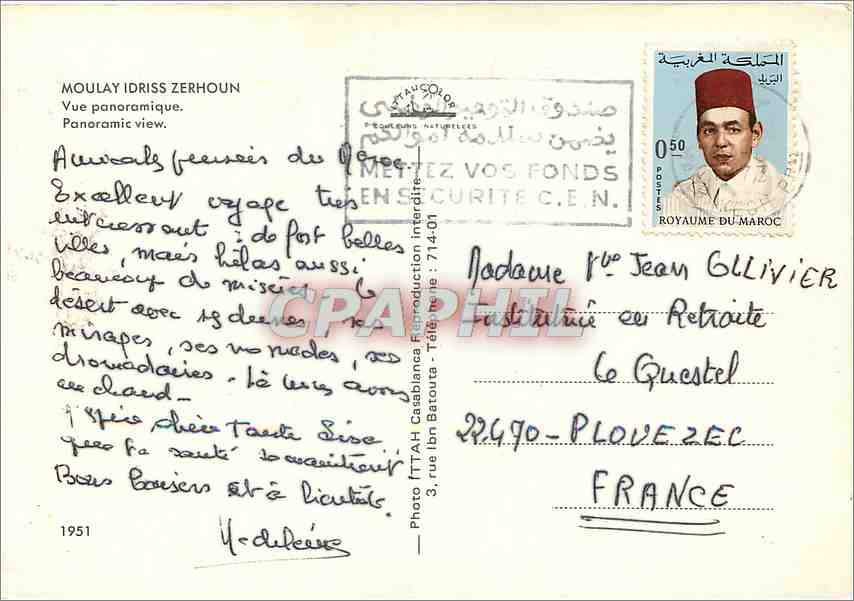 MOULAY IDRISS ZERHOUN
Vue panoramique.
Panoramic view.
Amicales pensées du Maroc.
Excellent voyage très
intéressant : de fort belles
villes, mais hélas aussi
beaucoup de misères. Le
désert avec ses dunes, ses
mirages, ses nomades, ses
dromadaires. Là nous avons
eu chaud.
J'espère chère Tante Lise
que la santé se maintient
Bons baisers et à bientôt.
Madeleine
1951
Photo ITTAH Casablanca Réproduction interdite
3, rue Ibn Batouta - Téléphone : 714-01
ITTAHCOLOR
COULEURS NATURELLES
صندوق التوفير الوطني
يضمن سلامة أموالكم
METTEZ VOS FONDS
EN SECURITE C.E.N.
المملكة المغربية
البريد
0,50
POSTES
ROYAUME DU MAROC
Madame Vve Jean OLLIVIER
Institutrice en Retraite
Le Questel
22.470 - PLOUEZEC
FRANCE
CPARAMA
CPAPHIL